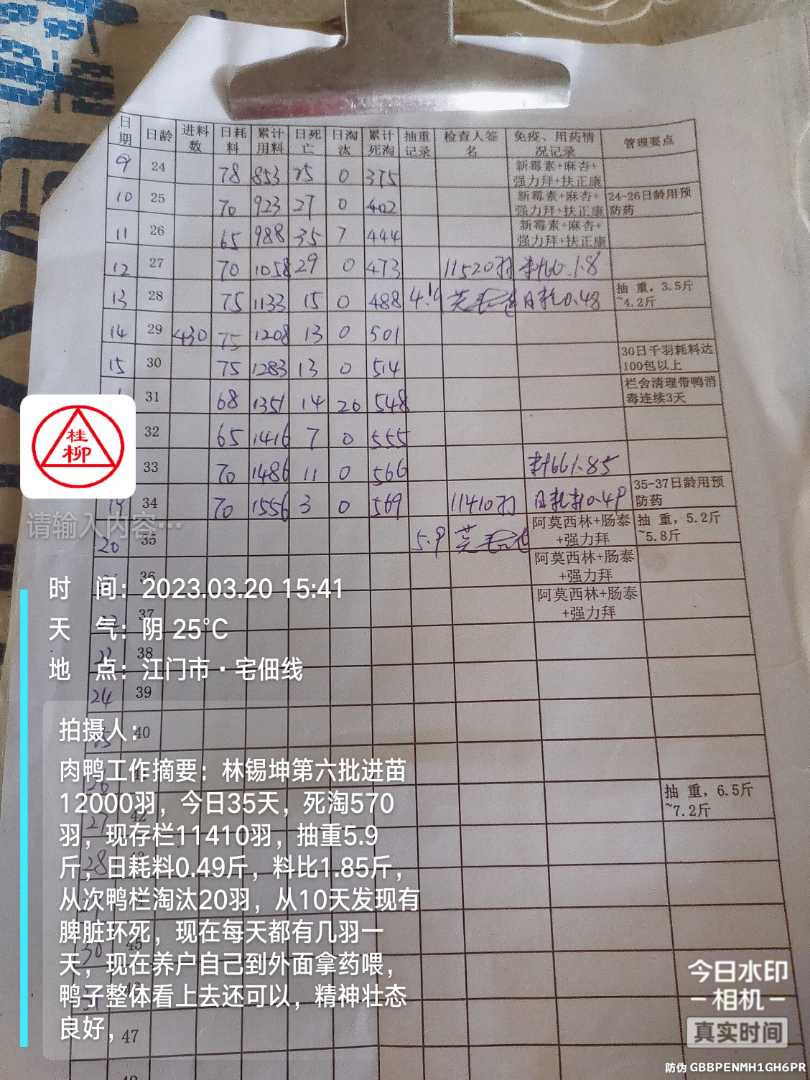 日期 日龄 进料数 日耗料 累计用料 日死亡 日淘汰 累计死淘 抽重记录 检查人签名 免疫、用药情况记录 管理要点
9 24 78 853 25 0 375 新霉素+麻杏+强力拜+扶正康
10 25 70 923 27 0 402 新霉素+麻杏+强力拜+扶正康 24-26日龄用预防药
11 26 65 988 35 7 444 新霉素+麻杏+强力拜+扶正康
12 27 70 1058 29 0 473 11520羽 料比1.8
13 28 75 1133 15 0 488 日耗0.48 抽重，3.5斤~4.2斤
14 29 430 75 1208 13 0 501
15 30 75 1283 13 0 514 30日千羽耗料达100包以上
31 68 1351 14 20 548 栏舍清理带鸭消毒连续3天
32 65 1416 7 0 555
33 70 1486 11 0 566 料比1.85
19 34 70 1556 3 0 569 11410羽 日耗料0.49 35-37日龄用预防药
20 35 5.9 阿莫西林+肠泰+强力拜 抽重，5.2斤~5.8斤
36 阿莫西林+肠泰+强力拜
37 阿莫西林+肠泰+强力拜
38
24 39
40
抽重，6.5斤~7.2斤
27
28
30
47
桂柳
请输入内容…
时 间：2023.03.20 15:41
天 气：阴 25℃
地 点：江门市·宅佃线
拍摄人：
肉鸭工作摘要：林锡坤第六批进苗
12000羽，今日35天，死淘570
羽，现存栏11410羽，抽重5.9
斤，日耗料0.49斤，料比1.85斤，
从次鸭栏淘汰20羽，从10天发现有
脾脏环死，现在每天都有几羽一
天，现在养户自己到外面拿药喂，
鸭子整体看上去还可以，精神壮态
良好，
今日水印
-相机-
真实时间
防伪 GBBPENMH1GH6PR